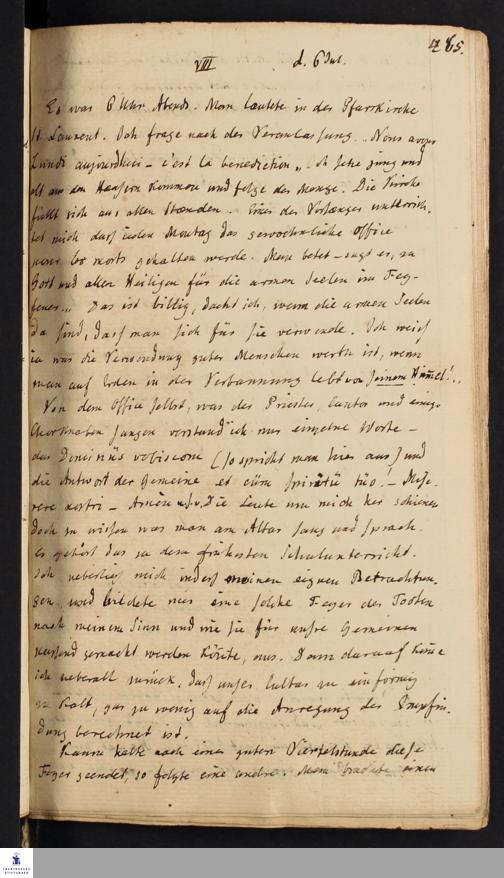 285.
VIII d. 6 Jul.
Es war 6 Uhr Abends. Man lautete in der Pfarrkirche
St Laurent. Ich frage nach der Veranlassung. „Nous avons
Lundi aujourdhui – c'est la benediction„. Ich sehe jung und
alt aus den Hæusern kommen und folge der Menge. Die Kirche
füllt sich aus allen Stænden. Einer der Vorsænger unterrich.
tet mich dass jeden Montag das gewoehnliche Office
pour les morts gehalten werde. Man betet – sagt er, zu
Gott und allen Heiligen für die armen Seelen im Feg-
feuer.„ Das ist billig, dacht ich, wenn die armen Seelen
da sind, dass man sich für sie verwende. Ich weiss
ja was die Verwendung guter Menschen werth ist, wenn
man auf Erden in der Verbannung lebt von seinem Himmel!..
Von dem Office selbst, was der Priester, Cantor und einige
Chorknaben sangen verstand ich nur einzelne Worte –
das Dominüs vobiscom (so spricht man hier aus) und
die Antwort der Gemeine et cüm spiritü tüo! – Mise-
rere nostri – Amèn u.s.w. Die Leute um mich her schienen
doch zu wissen was man am Altar sang und sprach.
es gehört das zu dem frühesten Schulunterricht.
Ich ueberliess mich indess meinen eignen Betrachtun.
gen, und bildete mir eine solche Feyer der Todten
nach meinem Sinn und wie sie für unsre Gemeinen
passend gemacht werden könte, aus. Denn darauf kome
ich ueberall zurück, dass unser Cultus zu einförmig
zu kalt, gar zu wenig auf die Anregung der Empfin.
dung berechnet ist.
Kaum hatte nach einer guten Viertelstunde diese
Feyer geendet, so folgte eine andre. Man einen
FRANCKESCHE
STIFTUNGEN